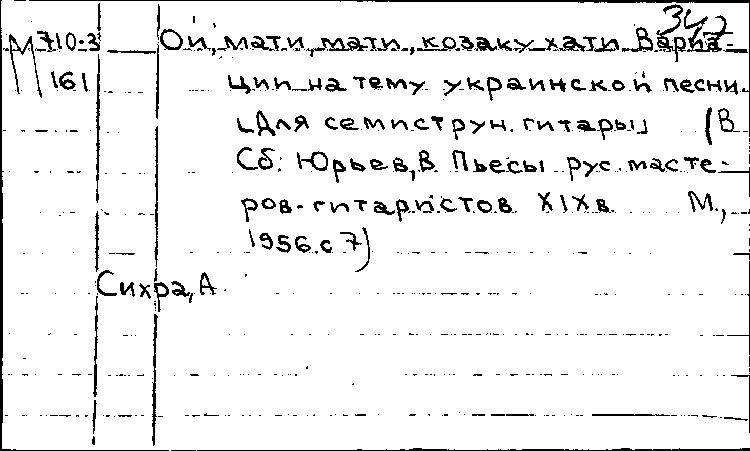 347
М 710-3 Ой, мати, мати, козак у хати Вариа-
161 ции на тему украинской песни.
[Для семиструн. гитары] (В
Сб: Юрьев, В Пьесы рус. масте-
ров-гитаристов XIX в М.,
1956. с 7)
Сихра, А.